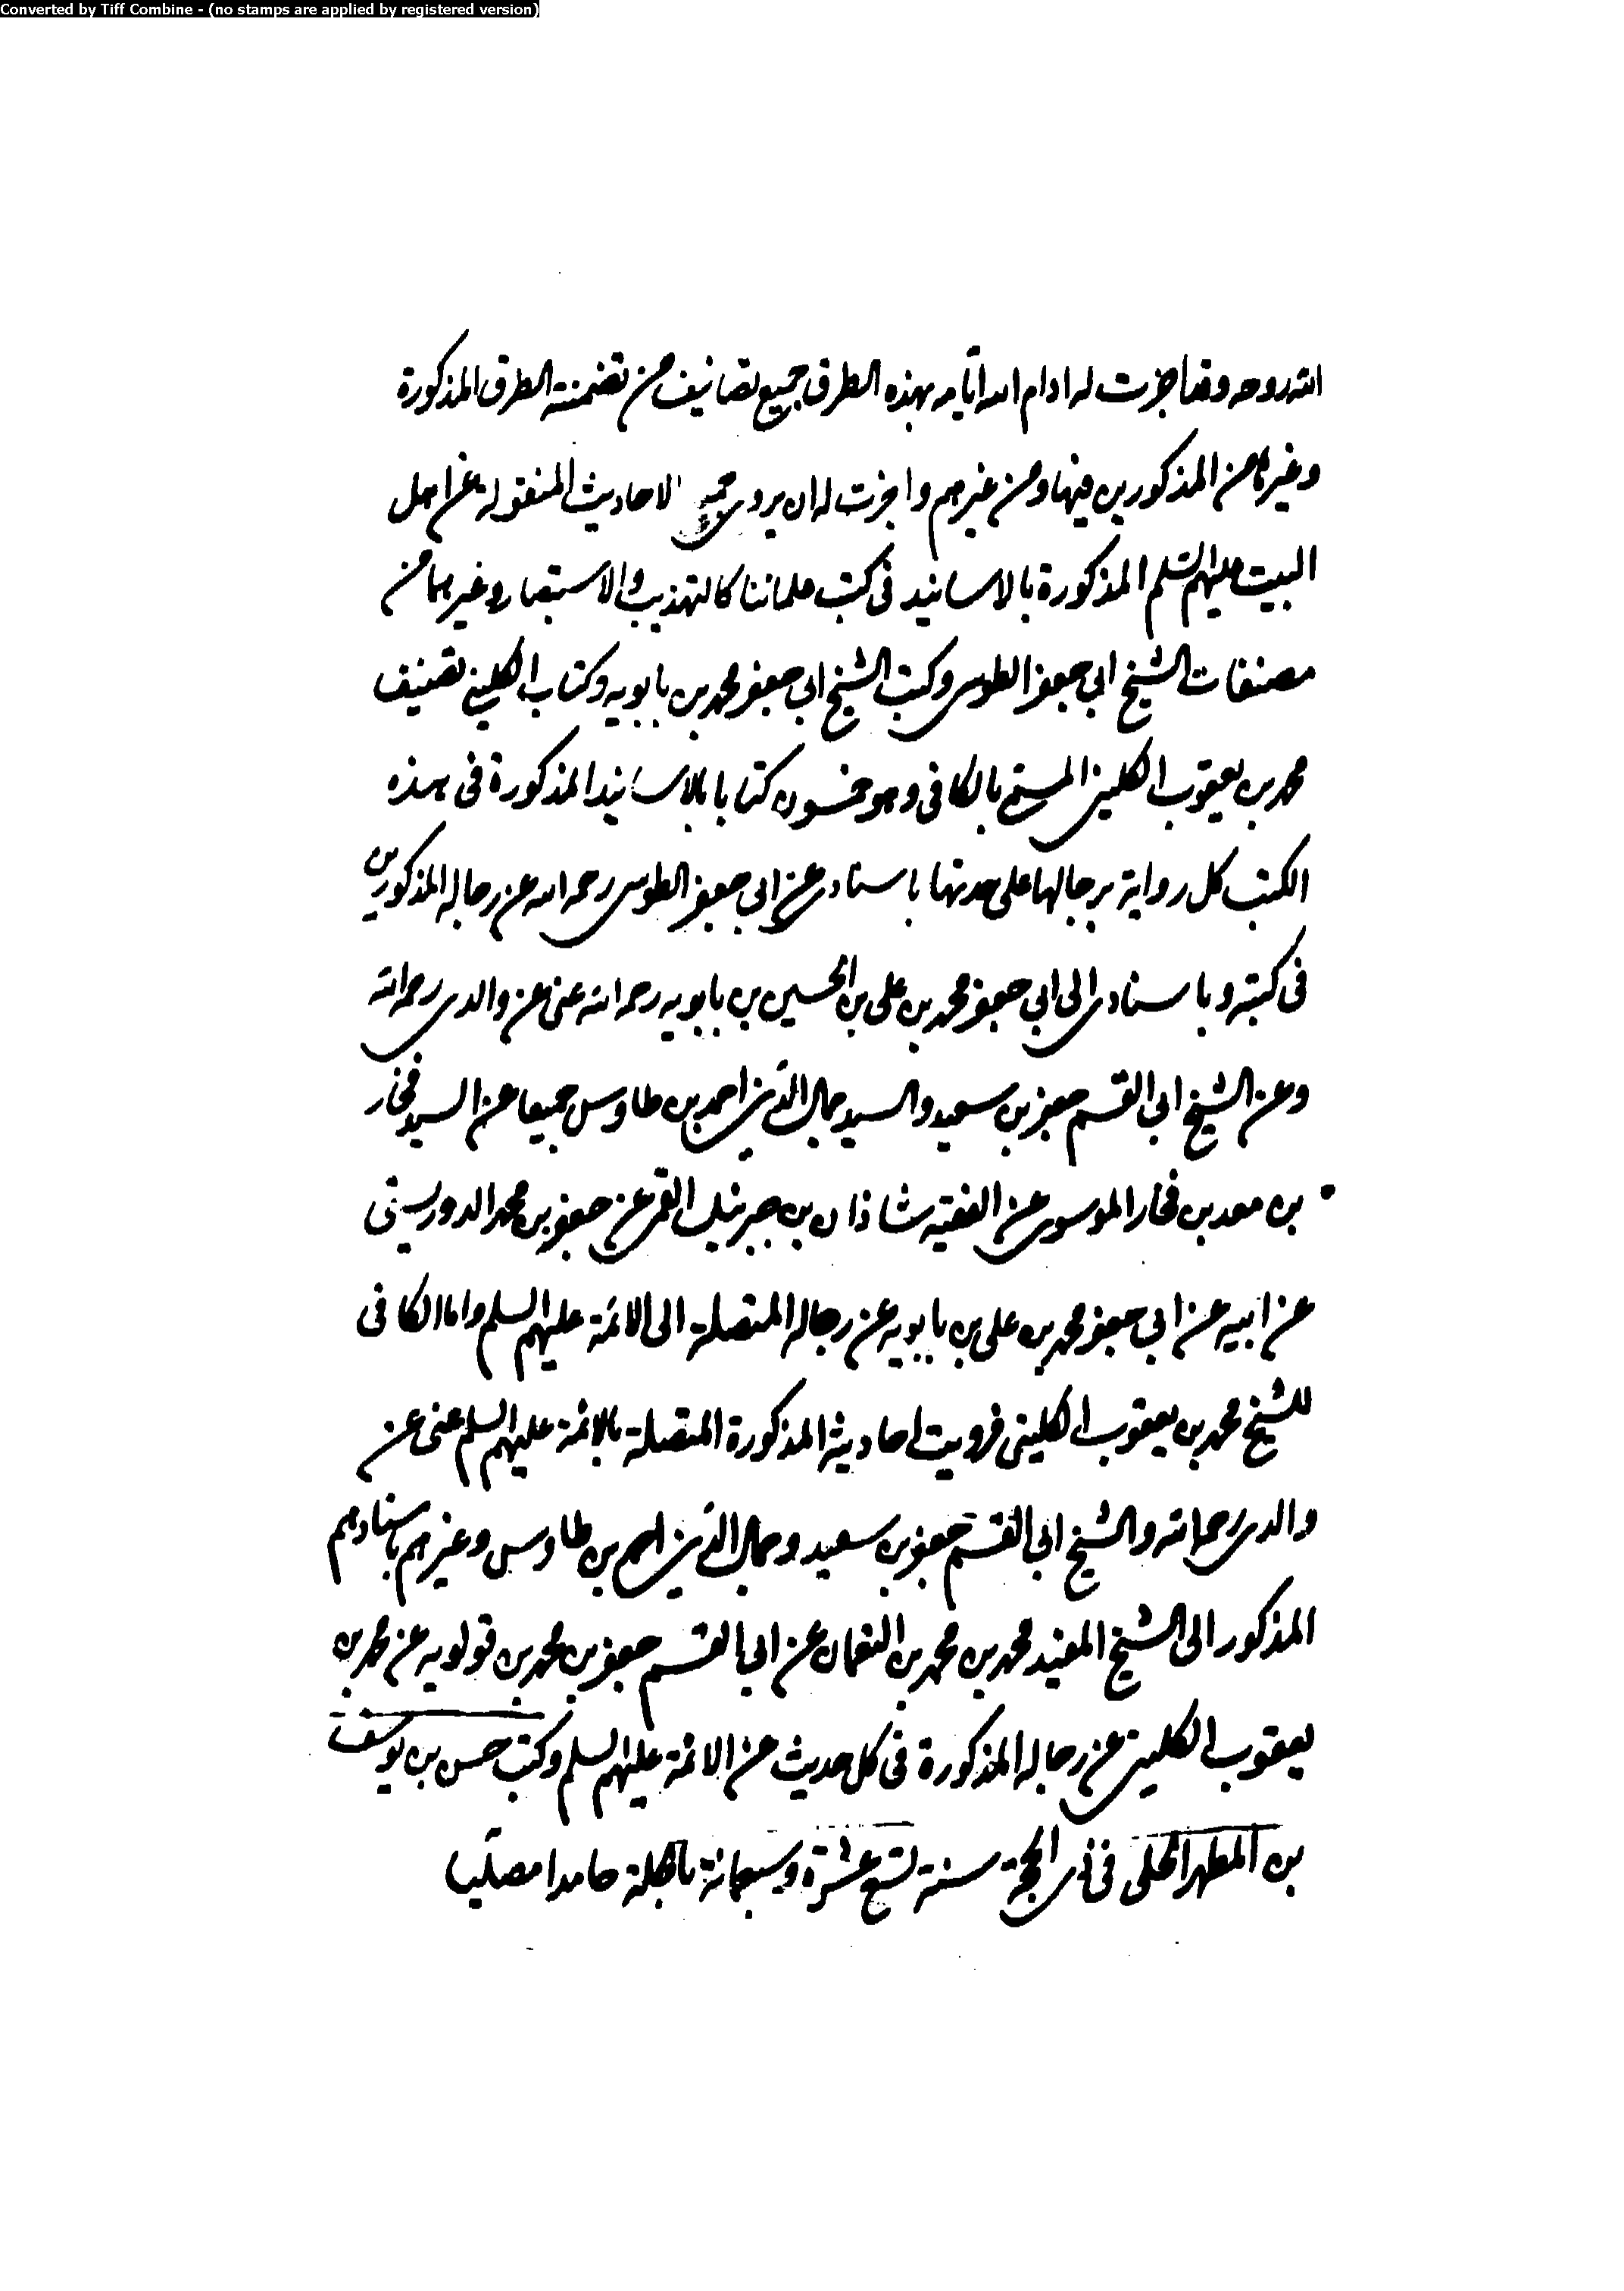 Converted by Tiff Combine - (no stamps are applied by registered version)
الله روحه وقد اجزت له ادام الله ايامه بهذه الطرق جميع تصانيف من تضمنته الطرق المذكورة
وغيرها من المذكورين فيها ومن غيرهم واجزت له ان يروى جميع الاحاديث المنقولة عن اهل
البيت عليهم السلم المذكورة بالاسانيد فى كتب علمائنا كالتهذيب والاستبصار وغيرهما من
مصنفات الشيخ ابي جعفر الطوسى وكتب الشيخ ابي جعفر محمد بن بابويه وكتاب الكلينى تصنيف
محمد بن يعقوب الكلينى المسمى بالكافى وهو خمسون كتابا بالاسانيد المذكورة فى هذه
الكتب كل رواية برجالها على حدتها باسنادى عن ابي جعفر الطوسى رحمه الله عن رجاله المذكورين
فى كتبه وباسنادى الى ابي جعفر محمد بن على بن الحسين بن بابويه رحمه الله عنى عن والدى رحمه الله
وعن الشيخ ابي القسم جعفر بن سعيد والسيد جمال الدين احمد بن طاوس جميعا عن السيد فخار
بن معد بن فخار الموسوى عن الفقيه شاذان بن جبرئيل القمى عن جعفر بن محمد الدوريستى
عن ابيه عن ابي جعفر محمد بن على بن بابويه عن رجاله المتصلة الى الائمة عليهم السلم واما الكافى
للشيخ محمد بن يعقوب الكلينى فرويت احاديثه المذكورة المتصلة بالائمة عليهم السلم عنى عن
والدى رحمه الله والشيخ ابي القسم جعفر بن سعيد وجمال الدين احمد بن طاوس وغيرهم باسنادهم
المذكور الى الشيخ المفيد محمد بن محمد بن النعمان عن ابي القسم جعفر بن محمد بن قولويه عن محمد بن
يعقوب الكلينى عن رجاله المذكورة فى كل حديث عن الائمة عليهم السلم وكتب حسن بن يوسف
بن المطهر الحلى فى ذى الحجة سنة تسع عشرة وسبعمائة بالحلة حامدا مصليا